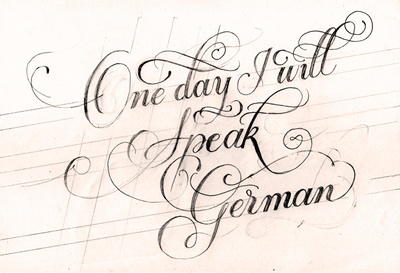 One day I will
Speak
German